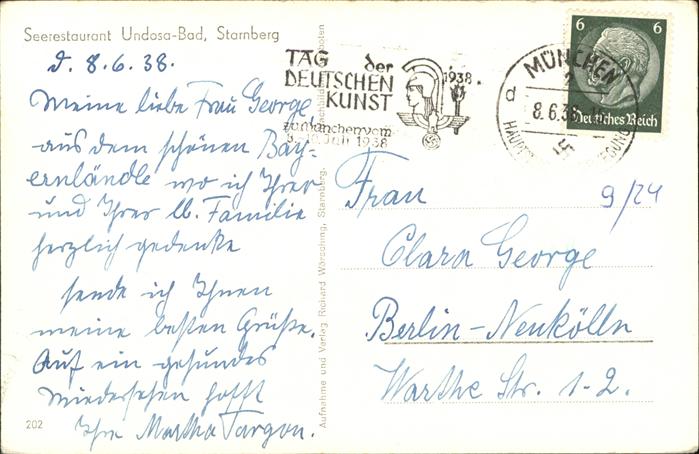 Seerestaurant Undosa-Bad, Starnberg
d. 8.6.38.
Meine liebe Frau George
aus dem schönen Bay-
ernländle wo ich Ihrer
und Ihrer lb. Familie
herzlich gedenke
sende ich Ihnen
meine besten Grüße.
Auf ein gesundes
Wiedersehen hofft
Ihre Martha Targon.
202
Aufnahme und Verlag Richard Wörsching, Starnberg.
TAG der 1938.
DEUTSCHEN
KUNST
zu München vom
8.-10. Juli 1938
MÜNCHEN
2
d
8.6.38
6 6
Deutsches Reich
9/24
Frau
Clara George
Berlin-Neukölln
Warthe Str. 1-2.